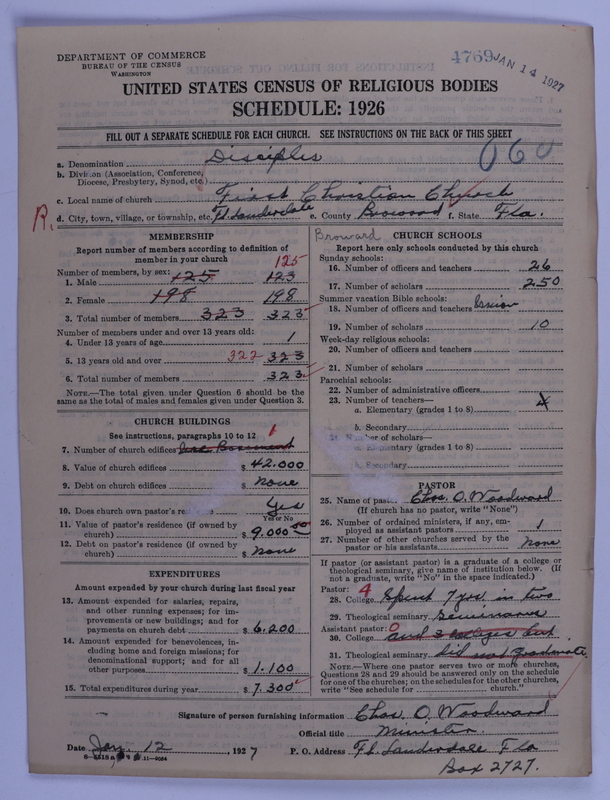 DEPARTMENT OF COMMERCE
BUREAU OF THE CENSUS
WASHINGTON
4769 JAN 14 1927
UNITED STATES CENSUS OF RELIGIOUS BODIES
SCHEDULE: 1926
FILL OUT A SEPARATE SCHEDULE FOR EACH CHURCH. SEE INSTRUCTIONS ON THE BACK OF THIS SHEET
a. Denomination Disciples 060
b. Division (Association, Conference, Diocese, Presbytery, Synod, etc.)
c. Local name of church First Christian Church
R. d. City, town, village, or township, etc. Ft. Lauderdale e. County Broward f. State Fla.
MEMBERSHIP
Report number of members according to definition of member in your church
Number of members, by sex: 125
1. Male 125 123
2. Female 198 198
3. Total number of members 323 323
Number of members under and over 13 years old:
4. Under 13 years of age 1
5. 13 years old and over 322 323
6. Total number of members 323
NOTE.—The total given under Question 6 should be the same as the total of males and females given under Question 3.
CHURCH BUILDINGS
See instructions, paragraphs 10 to 12
7. Number of church edifices 1
8. Value of church edifices $ 42.000
9. Debt on church edifices $ none
10. Does church own pastor's residence yes
Yes or No
11. Value of pastor's residence (if owned by church) $ 9.000 00
12. Debt on pastor's residence (if owned by church) $ none
EXPENDITURES
Amount expended by your church during last fiscal year
13. Amount expended for salaries, repairs, and other running expenses; for improvements or new buildings; and for payments on church debt $ 6.200
14. Amount expended for benevolences, including home and foreign missions; for denominational support; and for all other purposes $ 1.100
15. Total expenditures during year $ 7.300
Broward
CHURCH SCHOOLS
Report here only schools conducted by this church
Sunday schools:
16. Number of officers and teachers 26
17. Number of scholars 250
Summer vacation Bible schools:
18. Number of officers and teachers
19. Number of scholars 10
Week-day religious schools:
20. Number of officers and teachers
21. Number of scholars
Parochial schools:
22. Number of administrative officers
23. Number of teachers—
a. Elementary (grades 1 to 8)
b. Secondary
24. Number of scholars—
a. Elementary (grades 1 to 8)
b. Secondary
PASTOR
25. Name of pastor Chas. O. Woodward
(If church has no pastor, write "None")
26. Number of ordained ministers, if any, employed as assistant pastors 1
27. Number of other churches served by the pastor or his assistants none
If pastor (or assistant pastor) is a graduate of a college or theological seminary, give name of institution below. (If not a graduate, write "No" in the space indicated.)
Pastor: 4
28. College Spent 7 yrs. in two
29. Theological seminary seminaries
Assistant pastor: 0
30. College and 3 colleges but
31. Theological seminary did not graduate.
NOTE.—Where one pastor serves two or more churches, Questions 28 and 29 should be answered only on the schedule for one of the churches; on the schedules for the other churches, write "See schedule for church."
Signature of person furnishing information Chas. O. Woodward
Official title Minister
Date Jan. 12, 1927 P. O. Address Ft. Lauderdale Fla
Box 2727.